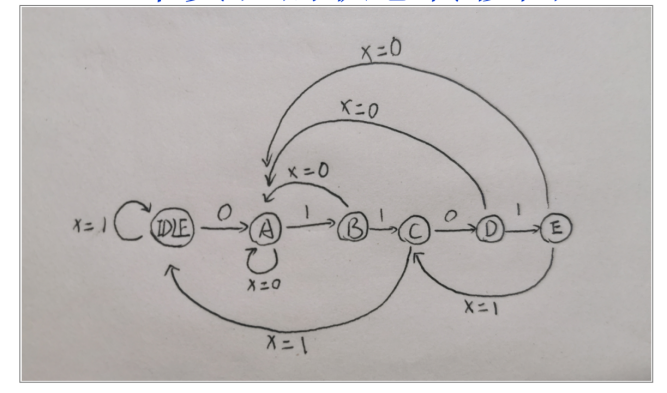 x=0
x=0
x=0
x=1 IDLE 0 A 1 B 1 C 0 D 1 E
x=0
x=1
x=1